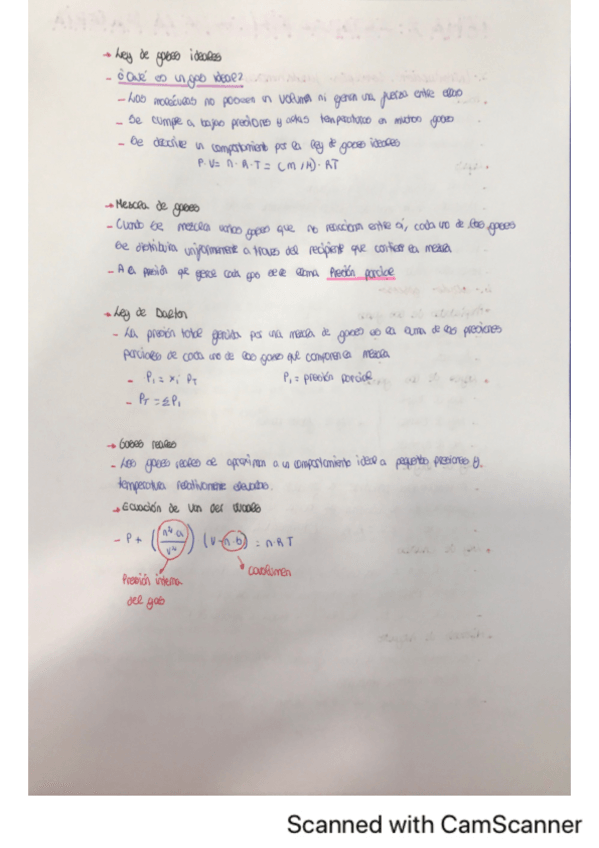 → Ley de gases ideales
- ¿Qué es un gas ideal?
- Las moléculas no poseen un volumen ni generan una fuerza entre ellas
- Se cumple a bajas presiones y altas temperaturas en muchos gases
- Se describe un comportamiento por la ley de gases ideales
P·V = n·R·T = (m/M)·RT
→ Mezcla de gases
- Cuando se mezclan varios gases que no reaccionan entre sí, cada uno de los gases
se distribuye uniformemente a través del recipiente que contiene la mezcla
- A la presión que ejerce cada gas se le llama Presión parcial
→ Ley de Dalton
- La presión total ejercida por una mezcla de gases es la suma de las presiones
parciales de cada uno de los gases que componen la mezcla
- Pi = xi PT Pi = presión parcial
- PT = ΣPi
→ Gases reales
- Los gases reales se aproximan a un comportamiento ideal a pequeñas presiones y
temperatura relativamente elevadas.
→ Ecuación de Van der Waals
- P + (n² a / V²) (V - n·b) = n·R·T
Presión interna
del gas
covolumen
Scanned with CamScanner